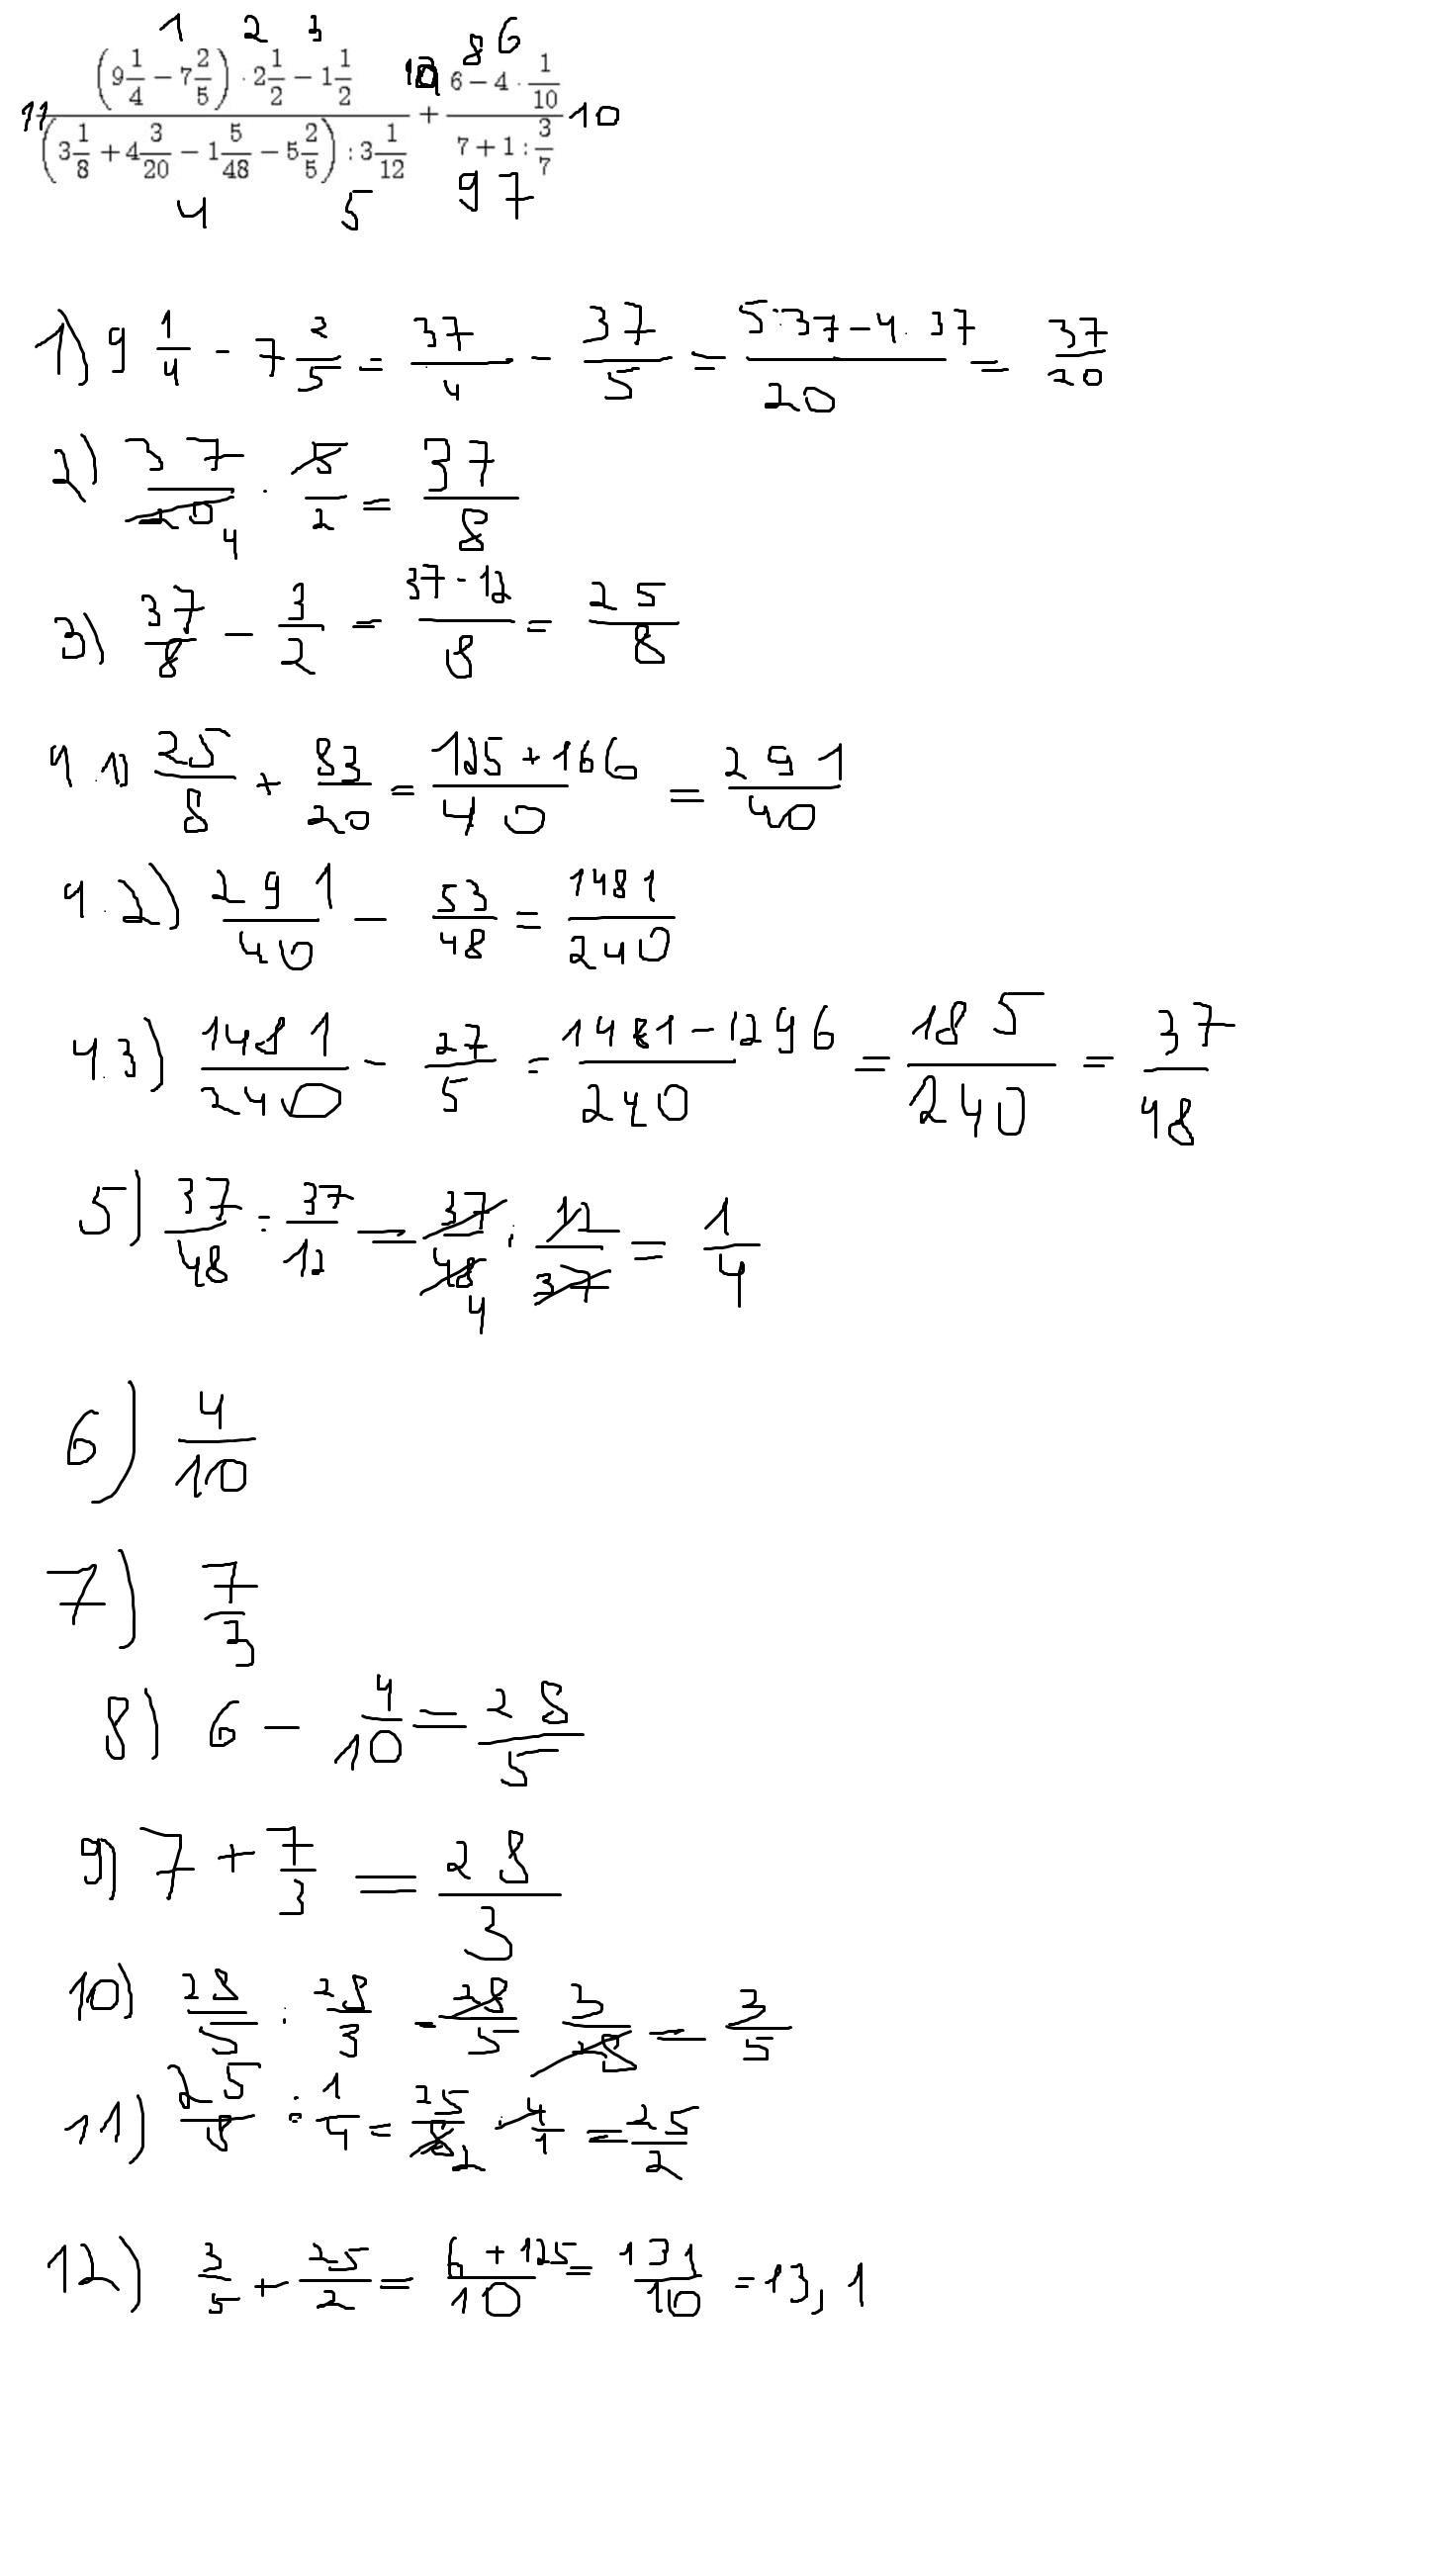 1 2 3 12 8 6
11 \frac{(9\frac{1}{4} - 7\frac{2}{5}) \cdot 2\frac{1}{2} - 1\frac{1}{2}}{(3\frac{1}{8} + 4\frac{3}{20} - 1\frac{5}{48} - 5\frac{2}{5}) : 3\frac{1}{12}} + \frac{6 - 4 \cdot \frac{1}{10}}{7 + 1 : \frac{3}{7}} 10
4 5 9 7
1) 9 \frac{1}{4} - 7 \frac{2}{5} = \frac{37}{4} - \frac{37}{5} = \frac{5 \cdot 37 - 4 \cdot 37}{20} = \frac{37}{20}
2) \frac{37}{20} 4 \cdot \frac{5}{2} = \frac{37}{8}
3) \frac{37}{8} - \frac{3}{2} = \frac{37 - 12}{8} = \frac{25}{8}
4.1) \frac{25}{8} + \frac{83}{20} = \frac{125 + 166}{40} = \frac{291}{40}
4.2) \frac{291}{40} - \frac{53}{48} = \frac{1481}{240}
4.3) \frac{1481}{240} - \frac{27}{5} = \frac{1481 - 1296}{240} = \frac{185}{240} = \frac{37}{48}
5) \frac{37}{48} : \frac{37}{12} = \frac{37}{48} 4 \cdot \frac{12}{37} = \frac{1}{4}
6) \frac{4}{10}
7) \frac{7}{3}
8) 6 - \frac{4}{10} = \frac{28}{5}
9) 7 + \frac{7}{3} = \frac{28}{3}
10) \frac{28}{5} : \frac{28}{3} = \frac{28}{5} \frac{3}{28} = \frac{3}{5}
11) \frac{25}{8} : \frac{1}{4} = \frac{25}{8} 2 \cdot \frac{4}{1} = \frac{25}{2}
12) \frac{3}{5} + \frac{25}{2} = \frac{6 + 125}{10} = \frac{131}{10} = 13,1